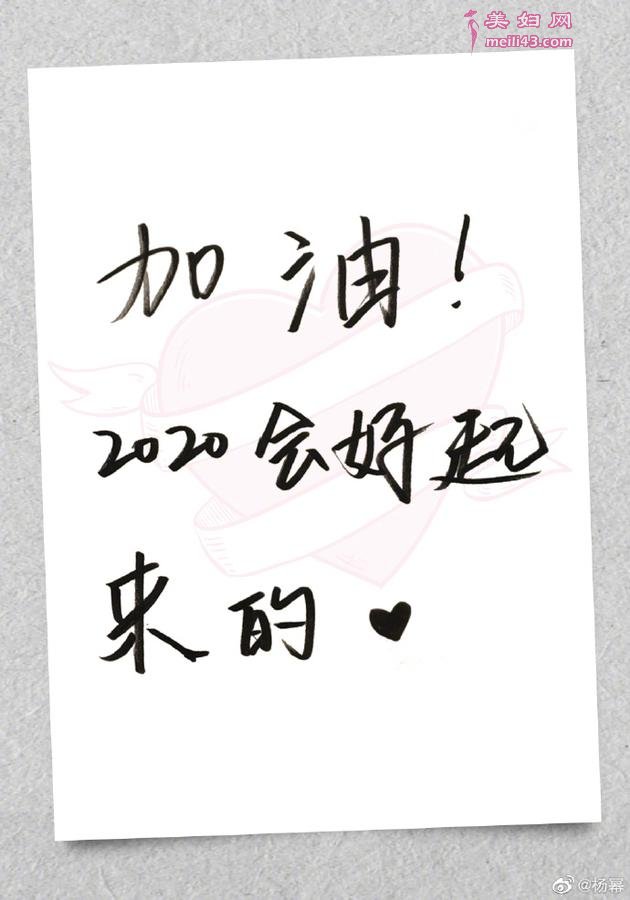 美妇网
meili43.com
加油！
2020会好起
来的♥
@杨幂